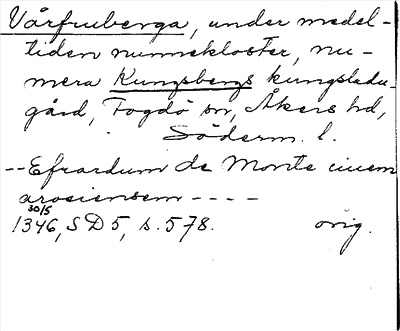 Vårfruberga, under medel-
tiden nunnekloster, nu-
mera Kungsbergs kungsladu-
gård, Fogdö sn, Åkers hd,
Söderm. l.
-- Efrardum de Monte ciuem
arosiensem - - - -
30/5
1346, SD 5, s. 578. orig.